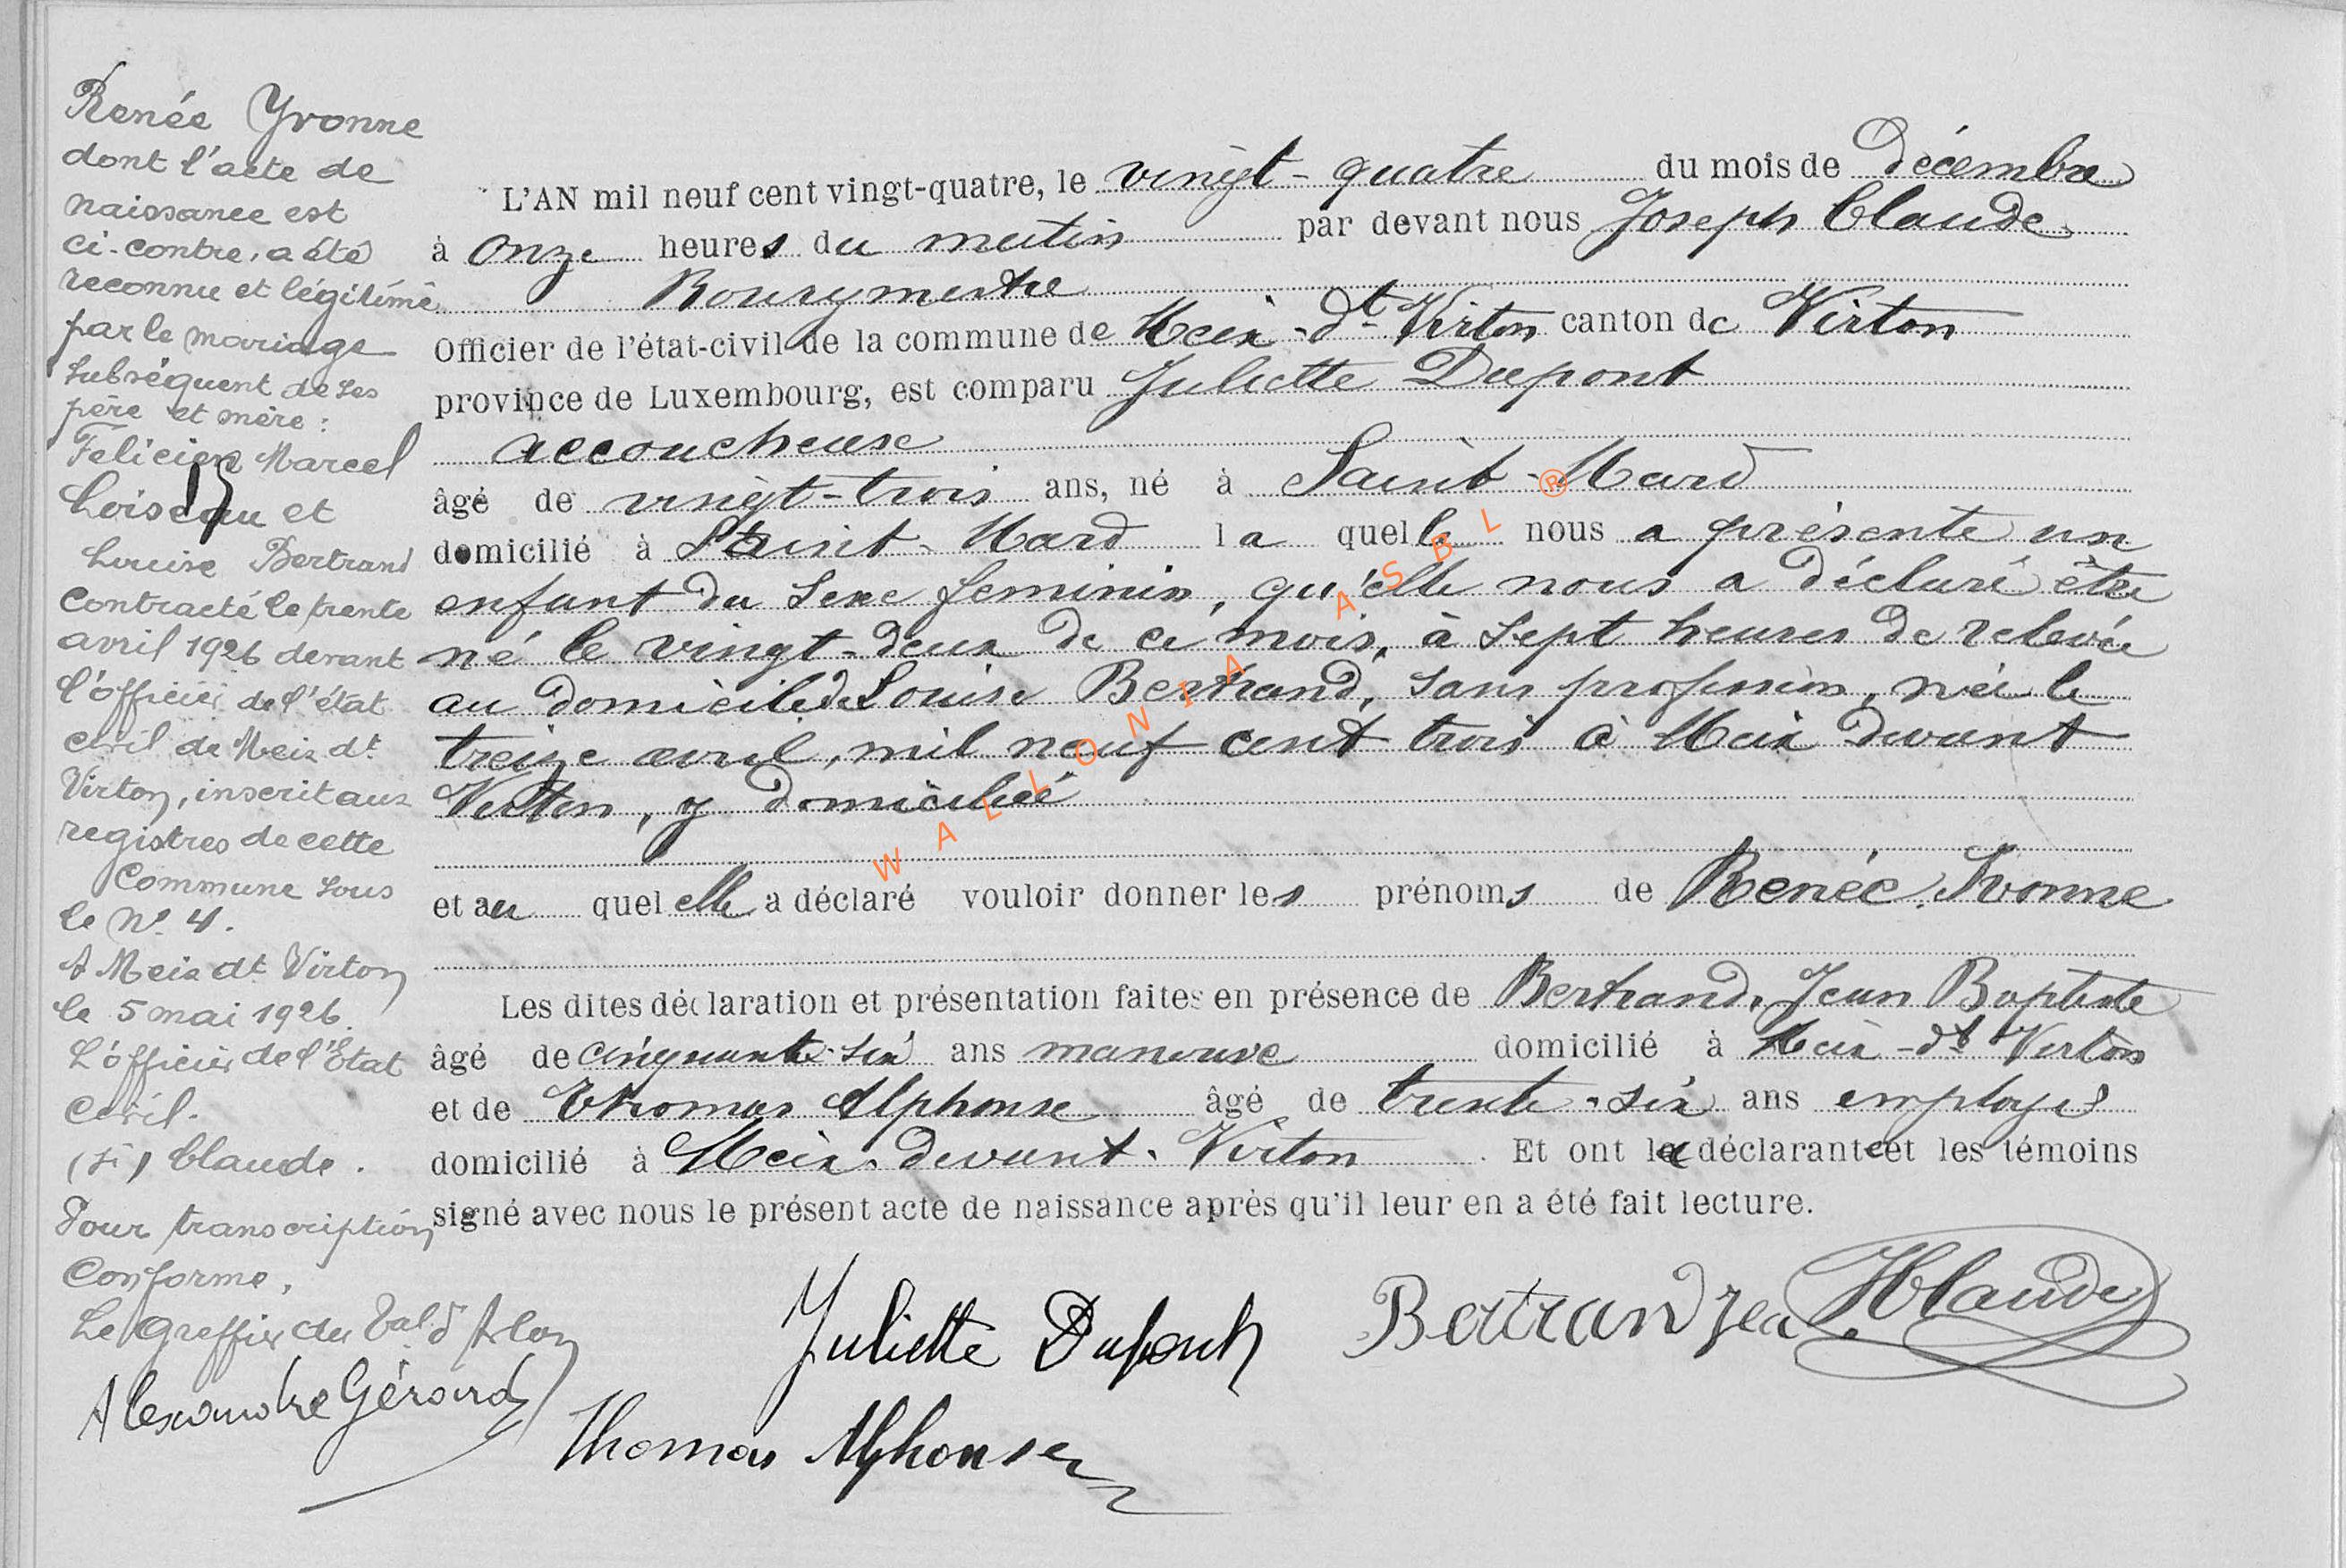 Renée Yvonne
dont l'acte de
naissance est
ci-contre, a été
reconnue et légitimé
par le mariage
subséquent de ses
père et mère :
Felicien Marcel
Loiseau et
Louise Bertrand
Contracté le trente
avril 1926 devant
l'officier de l'état
civil de Meix dt
Virton, inscrit aux
registres de cette
Commune sous
le No 4.
A Meix dt Virton
le 5 mai 1926.
L'officier de l'Etat
Civil.
(sé) Claude.
Pour transcription
Conforme,
Le Greffier du Bal d'Arlon
Alexandre Gérard
15
L'AN mil neuf cent vingt-quatre, le vingt-quatre du mois de décembre
à onze heures du matin par devant nous Joseph Claude
Bourgmestre
Officier de l'état-civil de la commune de Meix-dt-Virton canton de Virton
province de Luxembourg, est comparu Juliette Dupont
accoucheuse
âgé de vingt-trois ans, né à Saint-Mard
domicilié à Saint-Mard la quelle nous a présente un
enfant du sexe feminin, qu'elle nous a déclaré être
né le vingt-deux de ce mois, à sept heures de relevée
au domicile de Louise Bertrand, sans profession, née le
treize avril, mil neuf cent trois à Meix devant
Virton, y domiciliée
et au quel elle a déclaré vouloir donner les prénoms de Renée, Ivonne
Les dites déclaration et présentation faites en présence de Bertrand, Jean Baptiste
âgé de cinquante-six ans manœuvre domicilié à Meix-dt Virton
et de Thomas Alphonse âgé de trente-six ans employé
domicilié à Meix-devant-Virton. Et ont la déclarante et les témoins
signé avec nous le présent acte de naissance après qu'il leur en a été fait lecture.
Juliette Dupont Bertrand Jean JClaude
Thomas Alphonse
WALLONIA ASBL ®